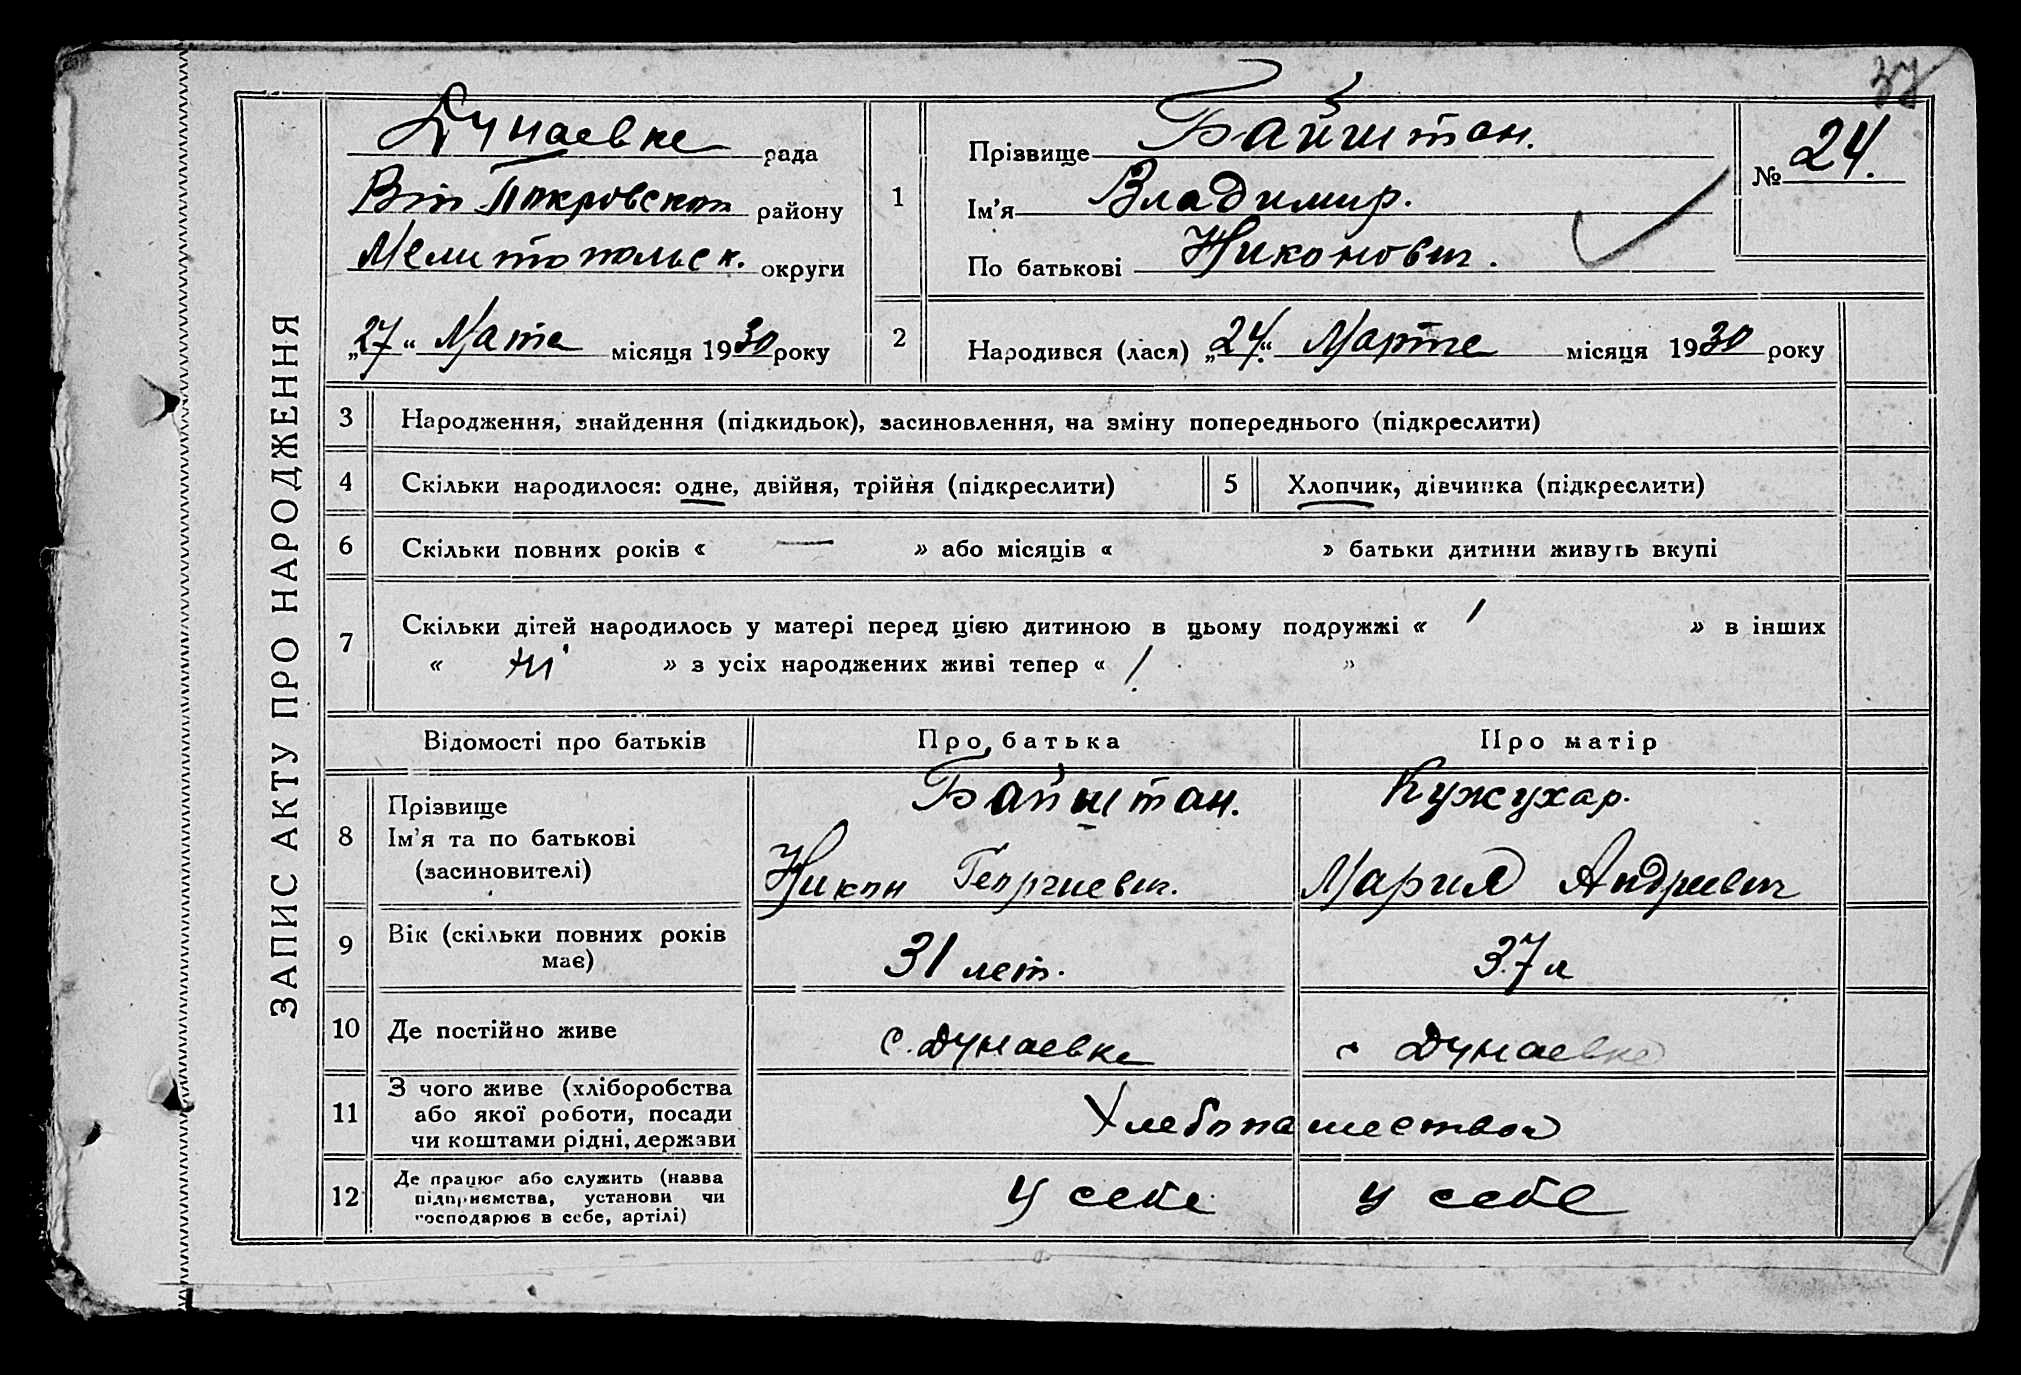 37
ЗАПИС АКТУ ПРО НАРОДЖЕННЯ
Дунаевке рада
Покровском району
Мелитопольск. округи
„27“ Мата місяця 1930 року
1 Прізвище Байштан.
Ім'я Владимир.
По батькові Никонович.
№ 24.
2 Народився (лася) „24.“ Марте місяця 1930 року
3 Народження, знайдення (підкидьок), засиновлення, на зміну попереднього (підкреслити)
4 Скільки народилося: одне, двійня, трійня (підкреслити) 5 Хлопчик, дівчинка (підкреслити)
6 Скільки повних років « — » або місяців « » батьки дитини живуть вкупі
7 Скільки дітей народилось у матері перед цією дитиною в цьому подружжі « 1 » в інших
« ні » з усіх народжених живі тепер « 1. »
Відомості про батьків Про батька Про матір
8 Прізвище
Ім'я та по батькові
(засиновителі)
Байштан.
Никон Георгиевич.
Кужухар.
Мария Андреевич
9 Вік (скільки повних років
має)
31 лет. 37 л
10 Де постійно живе с. Дунаевке с Дунаевке
11 З чого живе (хліборобства
або якої роботи, посади
чи коштами рідні, держави
Хлебопашество
12 Де працює або служить (назва
підприємства, установи чи
господарює в себе, артілі)
У себе У себе